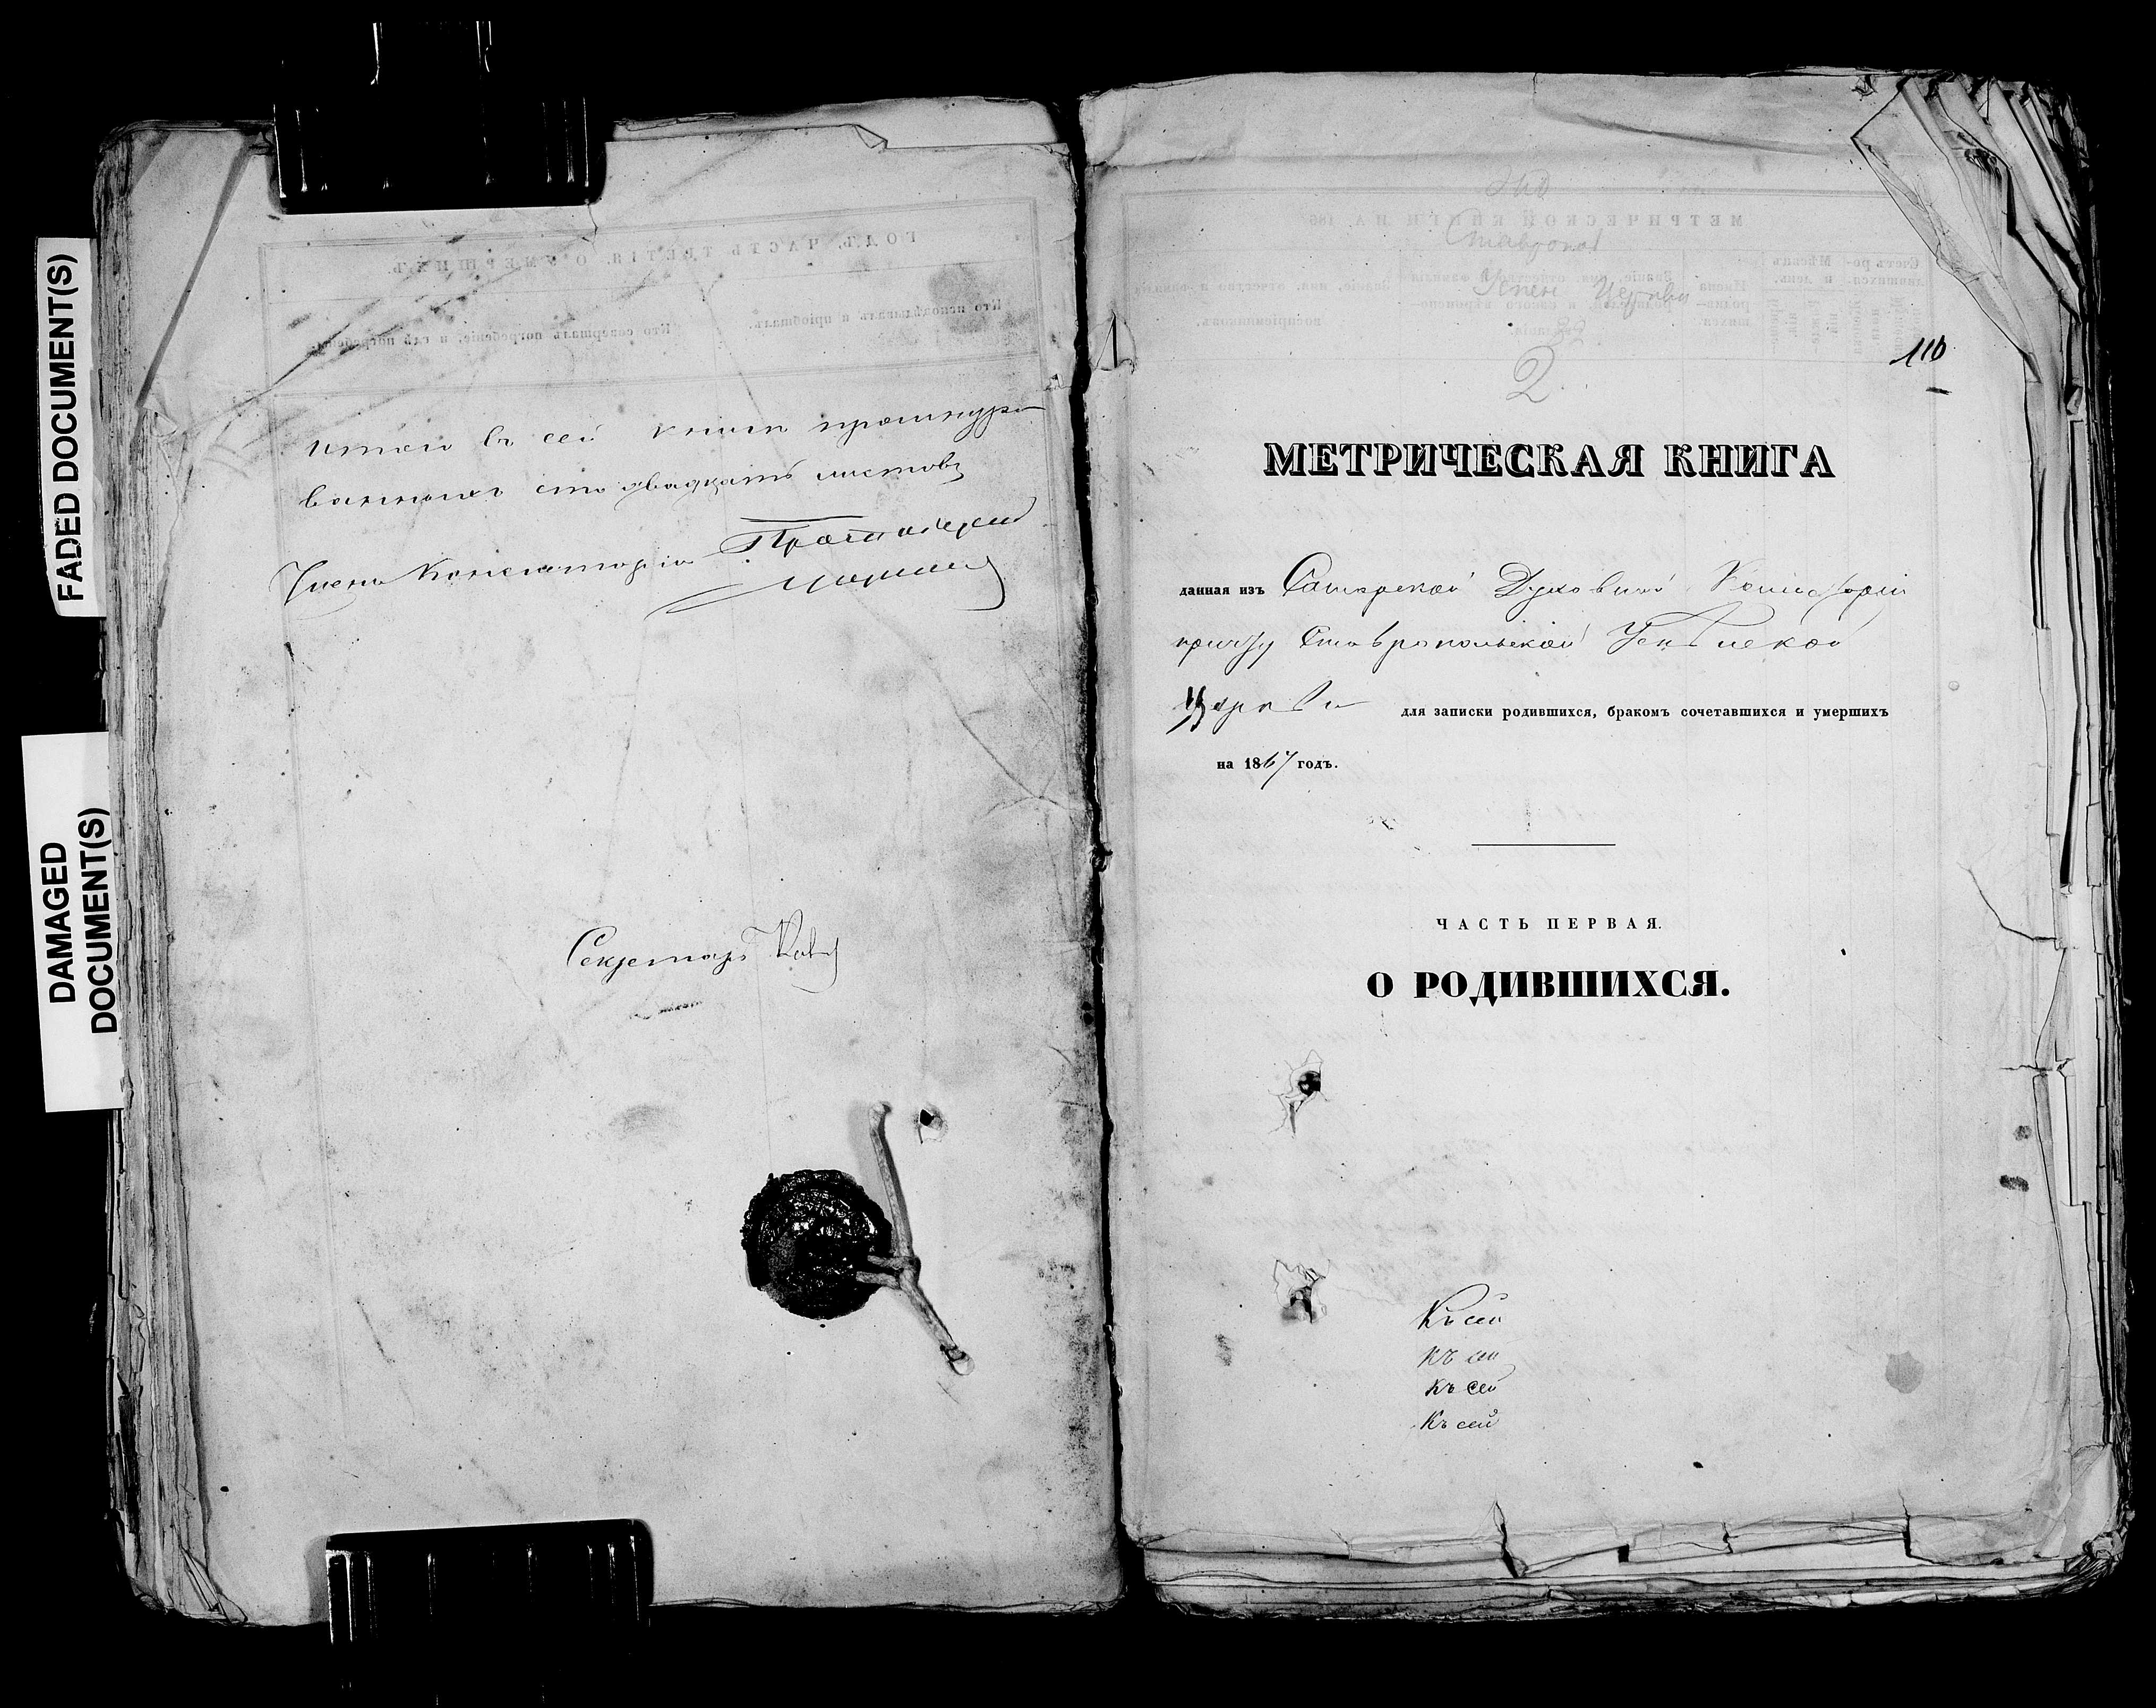 FADED DOCUMENT(S)
DAMAGED
DOCUMENT(S)
Итого въ сей книге прошнуро
ванныхъ сто двадцать листовъ
Членъ Консисторіи Протоіерей
Секретарь
Ставропол
Успен Церкви
2
110
МЕТРИЧЕСКАЯ КНИГА
данная изъ Самарской Духовной Консисторіи
причту Ставропольской Успѣнской
Церкви для записки родившихся, бракомъ сочетавшихся и умершихъ
на 1867 годъ.
ЧАСТЬ ПЕРВАЯ.
О РОДИВШИХСЯ.
Къ сей
Къ сей
Къ сей
Къ сей